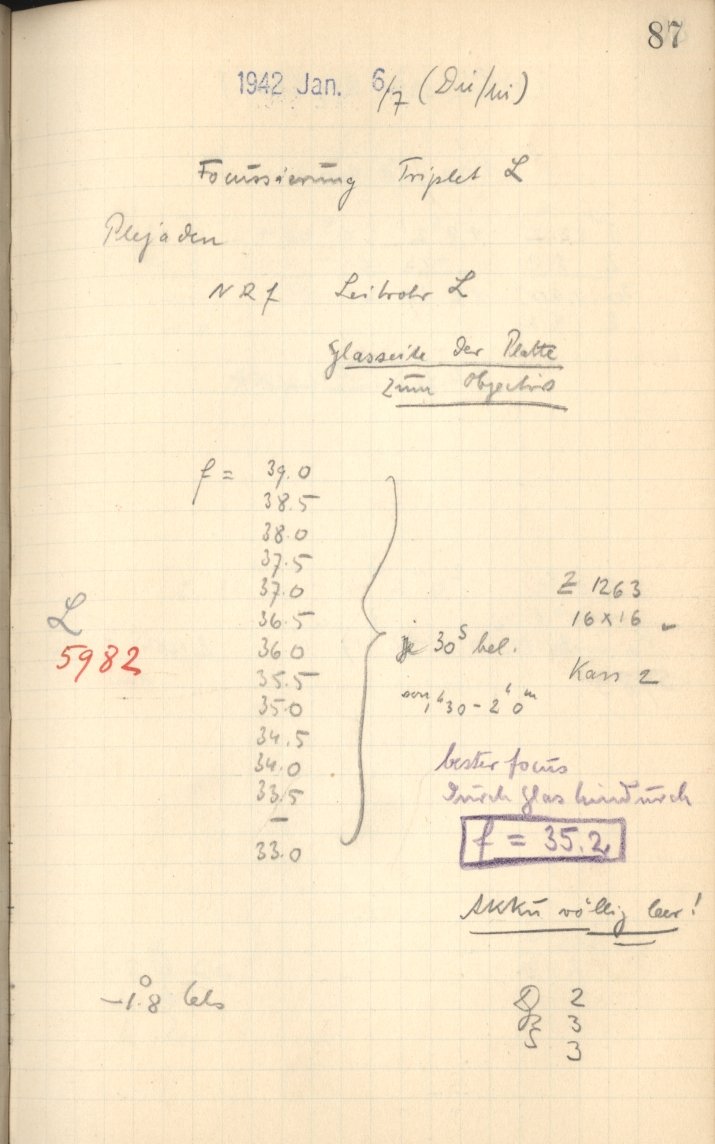 87
1942 Jan. 6/7 (Di/Mi)
Focussierung Triplet L
Plejaden
Leitrohr L
Glasseite der Platte
zum Objectiv
f = 39.0
38.5
38.0
37.5
37.0
36.5
36.0
35.5
35.0
34.5
34.0
33.5
–
33.0
L
5982
je 30s bel.
von 1h30 - 2h0m
Z 1263
16x16
Kass 2
bester focus
durch Glas hindurch
f = 35.2
Akku völlig leer!
-1.°8 Cels
D 2
3
3